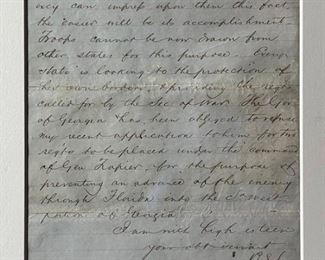 can impress upon them this fact,
the easier will be its accomplishment.
Troops cannot be now drawn from
other states for this purpose. Every
State is looking to the protection of
her own borders, & providing the regts
called for by the Sec of War. The Gov
of Georgia has been obliged to refuse
my recent application to him for two
regts to be placed under the command
of Gen Trapier, for the purpose of
preventing an advance of the enemy
through Florida into the S. West
portion of Georgia.
I am with high esteem
your obt servant